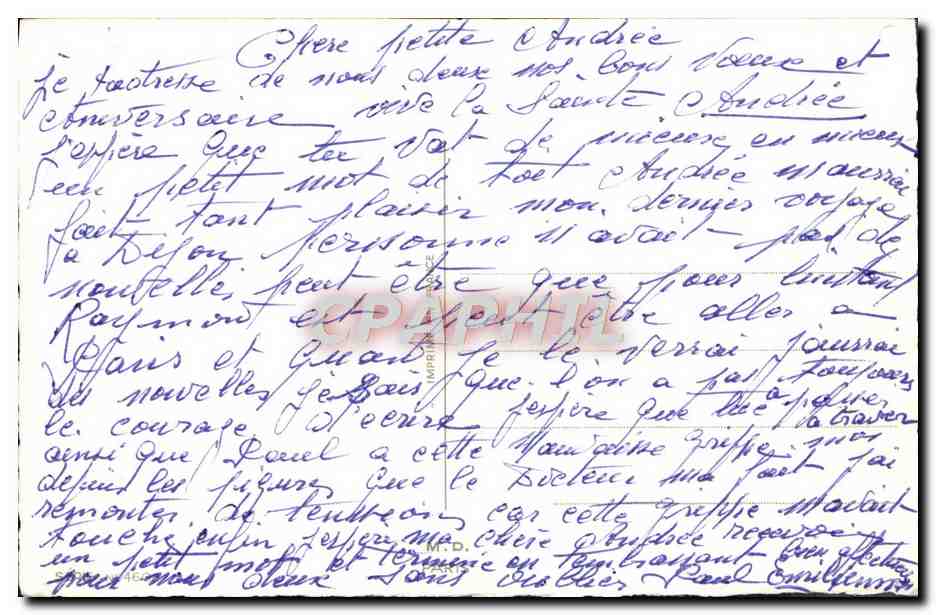 Chere petite Andrée
Je t'adresse de nous deux nos bons Vœux et
Anniversaire vive la Sainte Andrée
J'espère que tu vat de mieux en mieux
un petit mot de toi Andrée m'aurai
fait tant plaisir mon dernier voyage
a Dijon personne n'avait pas de
nouvelles peut être que pour linstant
Raymond est peut être aller a
Paris et quand je le verrai j'aurrai
des nouvelles je sais que l'on a pas toujours
le courage d'ecrire j'espère que tu a passer
a traver
ainsi que Paul a cette Mauvaise grippe moi
depuis les piqures que le Docteur ma fait j'ai
remonter de tension car cette grippe m'avait
touché enfin j'espère ma chère Andrée recevoir
un petit mot et termine en t'embrassant bien
pour nous deux sans oublier Paul
CPAPHIL
IMPRIMÉ EN FRANCE
M.D.
PARIS